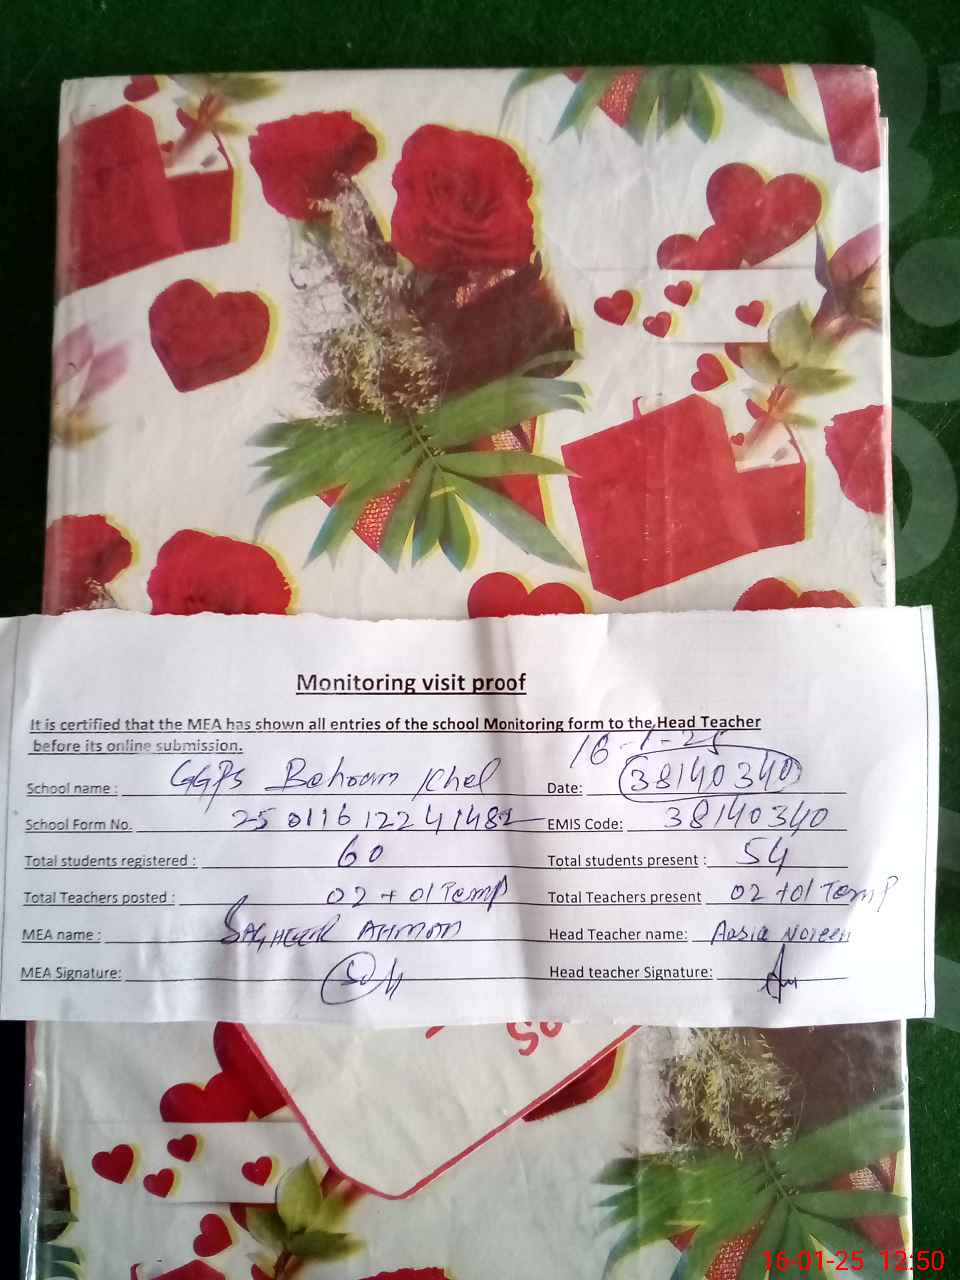 Monitoring visit proof
It is certified that the MEA has shown all entries of the school Monitoring form to the Head Teacher
before its online submission.
16-1-25
School name : GGPS Behram Khel Date: 38140340
School Form No. EMIS Code: 38140340
Total students registered : 60 Total students present : 54
Total Teachers posted : 02 + 01 Temp Total Teachers present 02 + 01 Temp
MEA name : SAGHEER AHMAD Head Teacher name: Aasia Noreen
MEA Signature: Head teacher Signature:
16-01-25 12:50